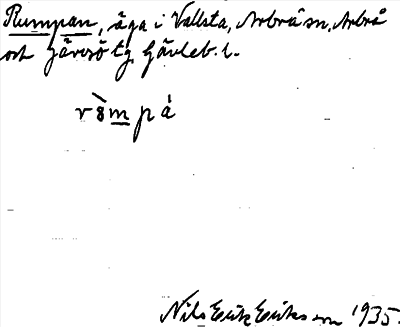 Rumpan, äga i Vallsta, Arbrå sn, Arbrå
och Järvsö tg Gävleb. l.
rømpa
Nils Erik Eriksson 1935.